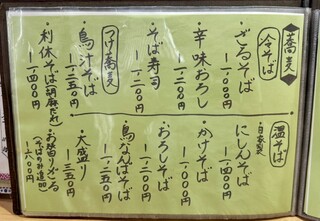 蕎麦
冷そば
・ざるそば
一、〇〇〇円
・辛味おろし
一、二〇〇円
・そば寿司
一、二〇〇円
つけ蕎麦
・鳥汁そば
一、二五〇円
・利休そば(胡麻だれ)
一、四〇〇円
・お替りざる
(そばのみ追加)
六〇〇円
温そば
自家製
・にしんそば
一、四〇〇円
・かけそば
一、〇〇〇円
・おろしそば
一、二〇〇円
・鳥なんばそば
一、二五〇円
・大盛り
三五〇円